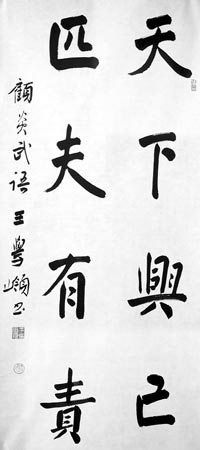 天下興亡
匹夫有責
顧炎武語 王學嶺書